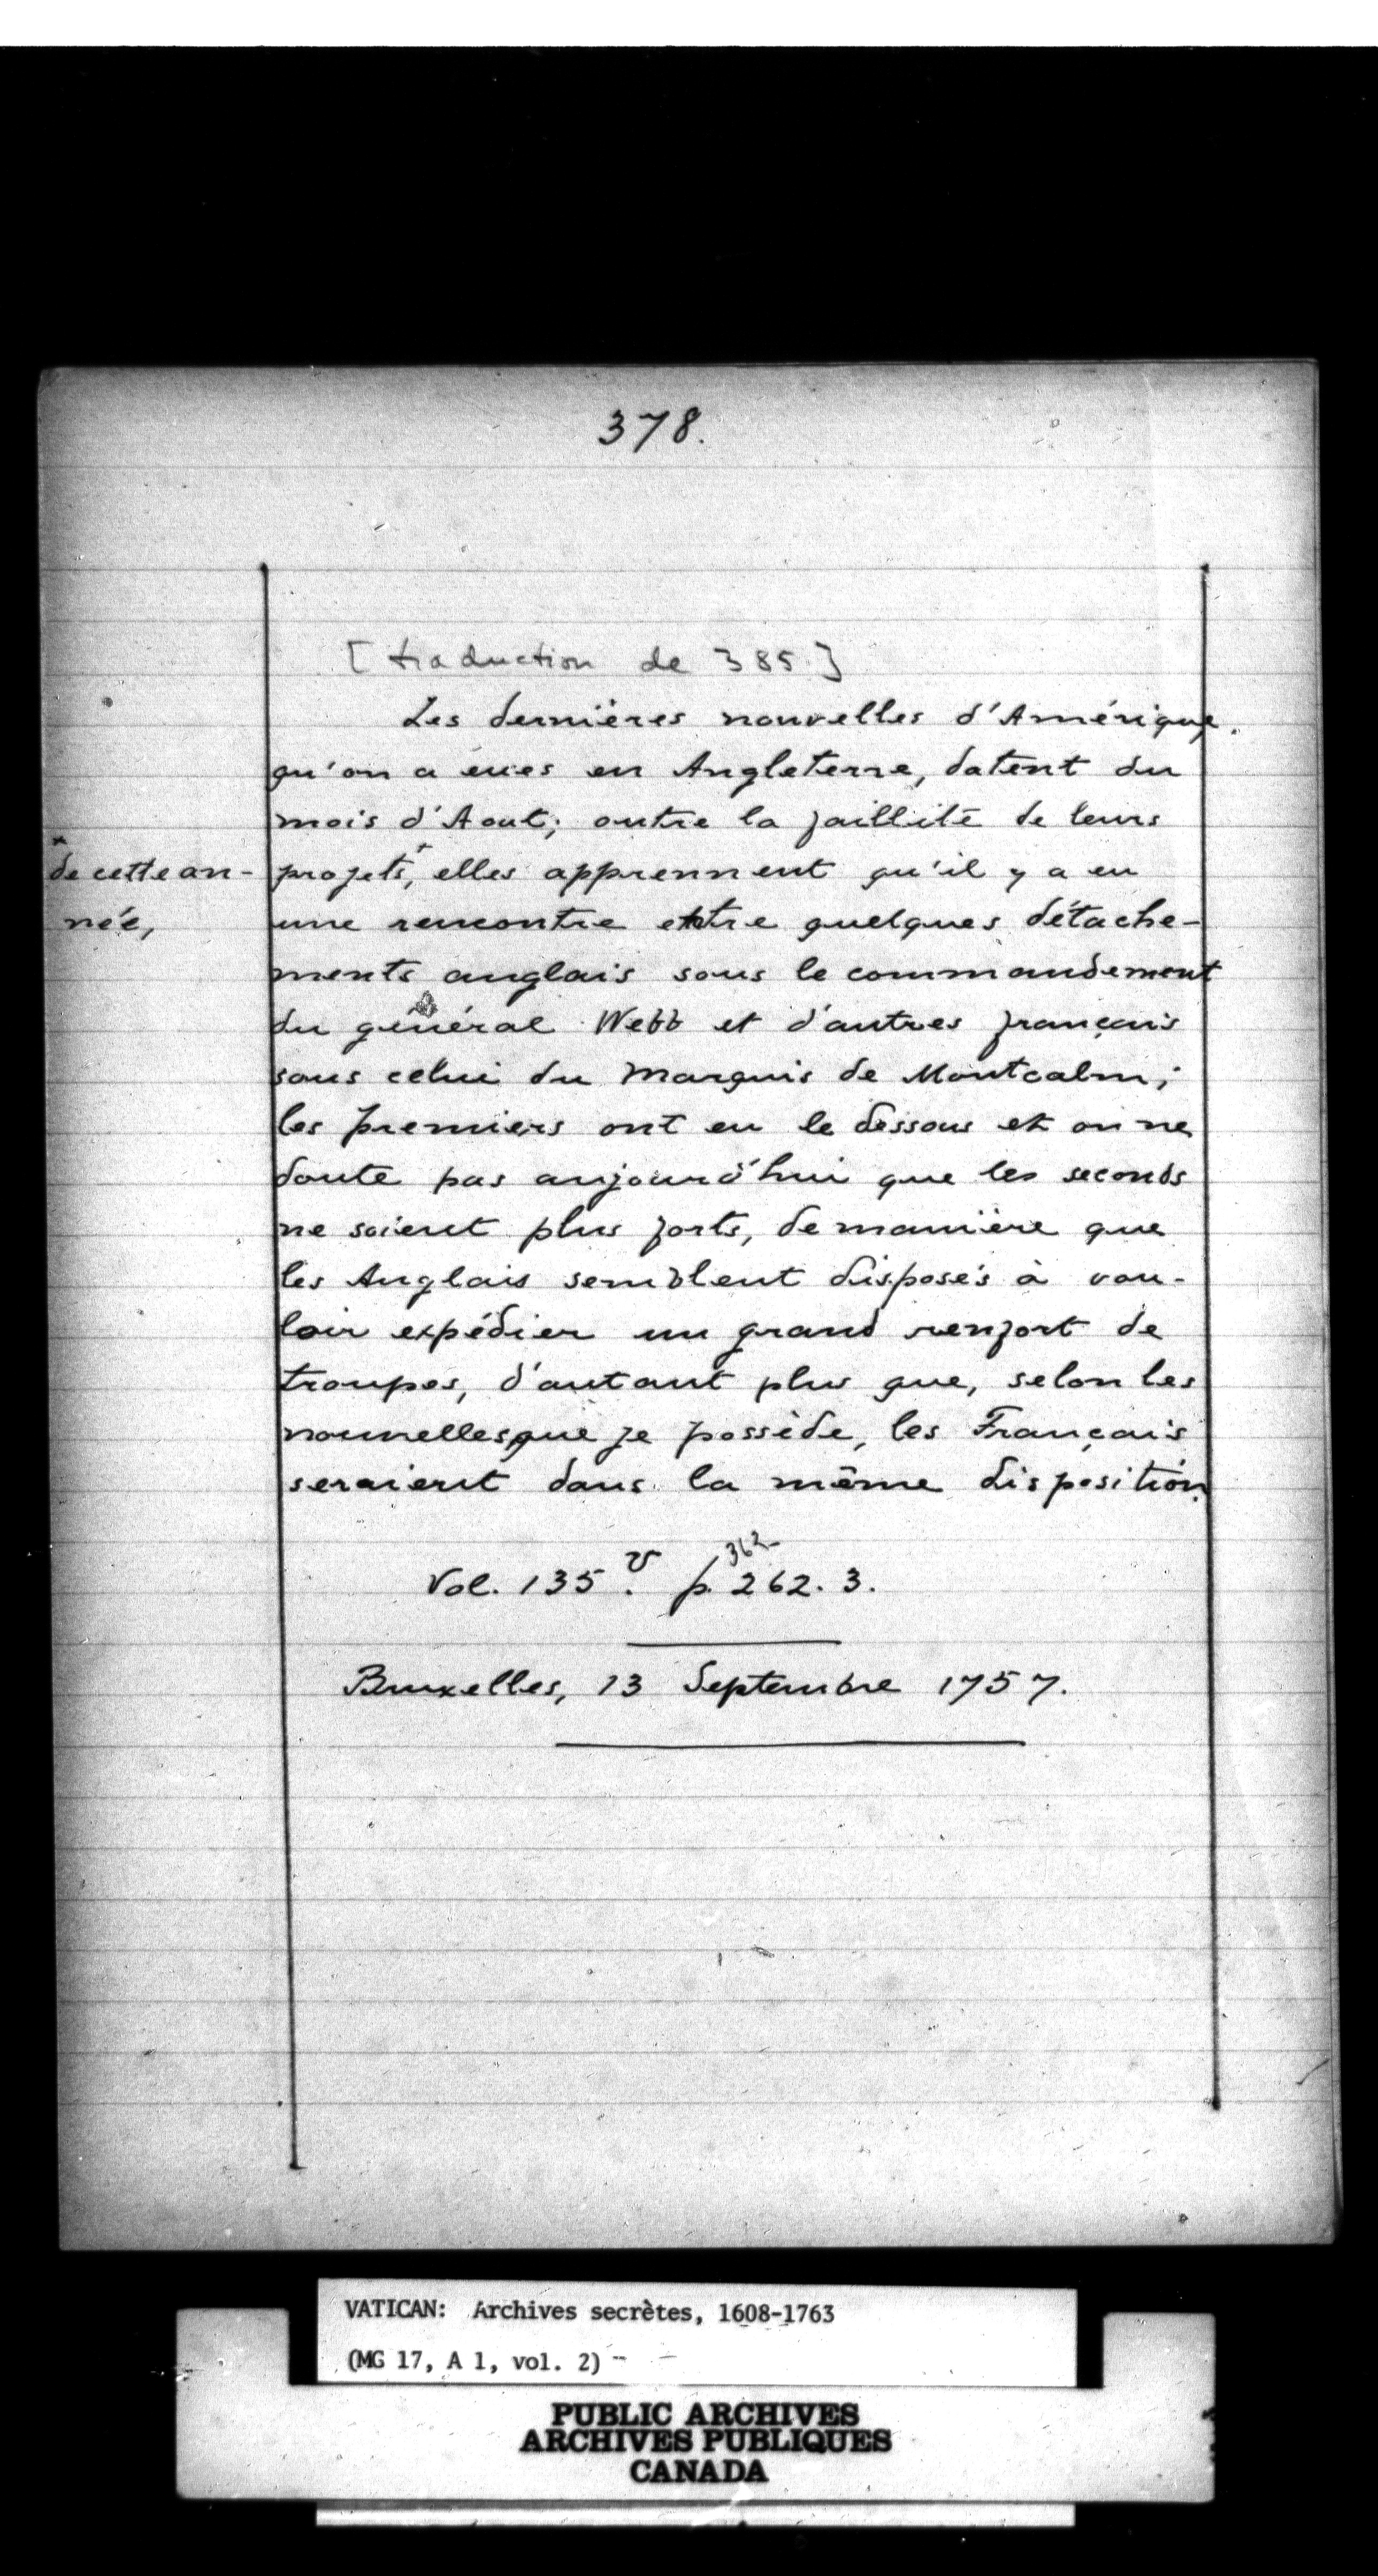 378.
[traduction de 385]
Les dernières nouvelles d'Amérique
qu'on a eues en Angleterre, datent du
mois d'Aout; outre la faillite de leurs
projets,+ elles apprennent qu'il y a eu
+ de cette an-
née,
une rencontre entre quelques détache-
ments anglais sous le commandement
du général Webb et d'autres français
sous celui du Marquis de Montcalm;
les premiers ont eu le dessous et on ne
doute pas aujourd'hui que les seconds
ne soient plus forts, de manière que
les Anglais semblent disposés à vou-
loir expédier un grand renfort de
troupes, d'autant plus que, selon les
nouvelles que je possède, les Français
seraient dans la même disposition
362
Vol. 135. v p. 262. 3.
Bruxelles, 13 Septembre 1757.
VATICAN: Archives secrètes, 1608-1763
(MG 17, A 1, vol. 2)
PUBLIC ARCHIVES
ARCHIVES PUBLIQUES
CANADA